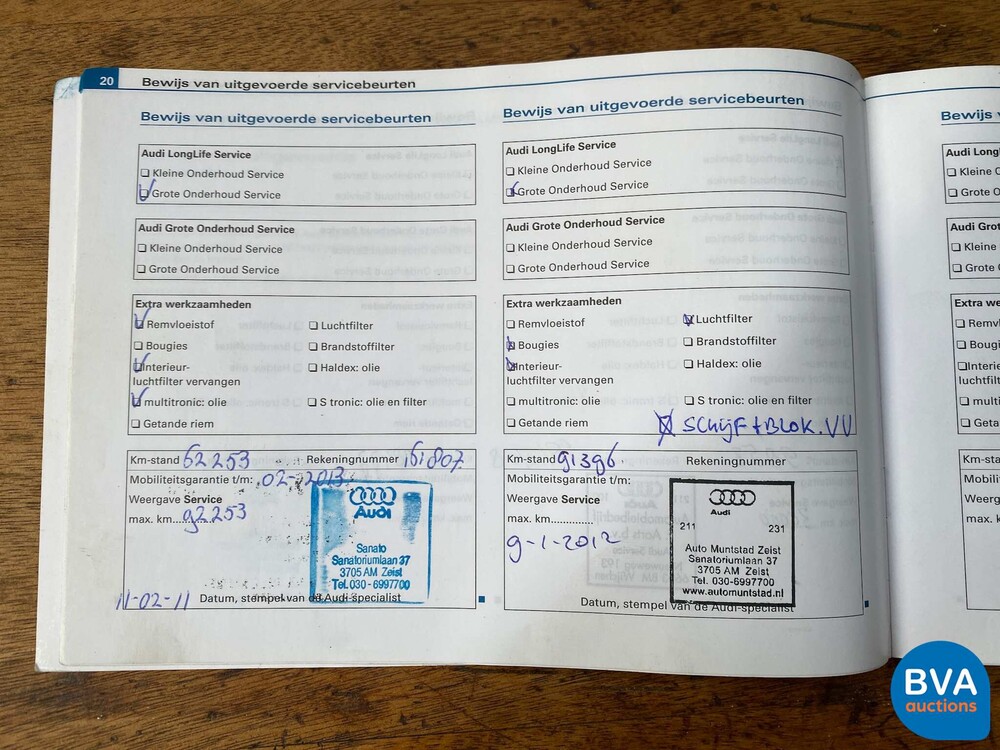 20 Bewijs van uitgevoerde servicebeurten
Bewijs van uitgevoerde servicebeurten
Audi LongLife Service
Kleine Onderhoud Service
Grote Onderhoud Service
Audi Grote Onderhoud Service
Kleine Onderhoud Service
Grote Onderhoud Service
Extra werkzaamheden
Remvloeistof Luchtfilter
Bougies Brandstoffilter
Interieur- Haldex: olie
luchtfilter vervangen
multitronic: olie S tronic: olie en filter
Getande riem
Km-stand 62253 Rekeningnummer 161807
Mobiliteitsgarantie t/m: 02-2013
Weergave Service
max. km. 92253
Audi
Sanato
Sanatoriumlaan 37
3705 AM Zeist
Tel. 030-6997700
11-02-11
Datum, stempel van de Audi-specialist
Bewijs van uitgevoerde servicebeurten
Audi LongLife Service
Kleine Onderhoud Service
Grote Onderhoud Service
Audi Grote Onderhoud Service
Kleine Onderhoud Service
Grote Onderhoud Service
Extra werkzaamheden
Remvloeistof Luchtfilter
Bougies Brandstoffilter
Interieur- Haldex: olie
luchtfilter vervangen
multitronic: olie S tronic: olie en filter
Getande riem SCHIJF + BLOK. VV
Km-stand 91396. Rekeningnummer
Mobiliteitsgarantie t/m:
Weergave Service
max. km..............
9-1-2012
Audi
211 231
Auto Muntstad Zeist
Sanatoriumlaan 37
3705 AM Zeist
Tel. 030-6997700
www.automuntstad.nl
Datum, stempel van de Audi-specialist
Bewijs v
Audi LongL
Kleine O
Grote O
Audi Grot
Kleine
Grote
Extra we
Remvl
Bougi
Interie
luchtfilt
multi
Getan
Km-st
Mobil
Weerg
max.
BVA
auctions